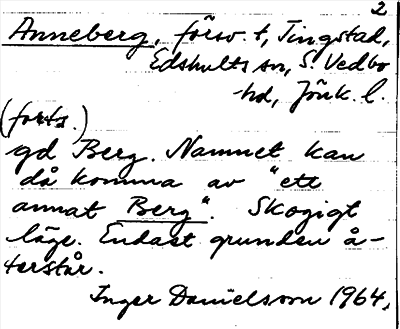 2
Anneberg, försv. t, Tingstad,
Edshults sn, S. Vedbo
hd, Jönk. l.
(forts.)
gd Berg. Namnet kan
då komma av "ett
annat Berg". Skogigt
läge. Endast grunden å-
terstår.
Inger Danielsson 1964.